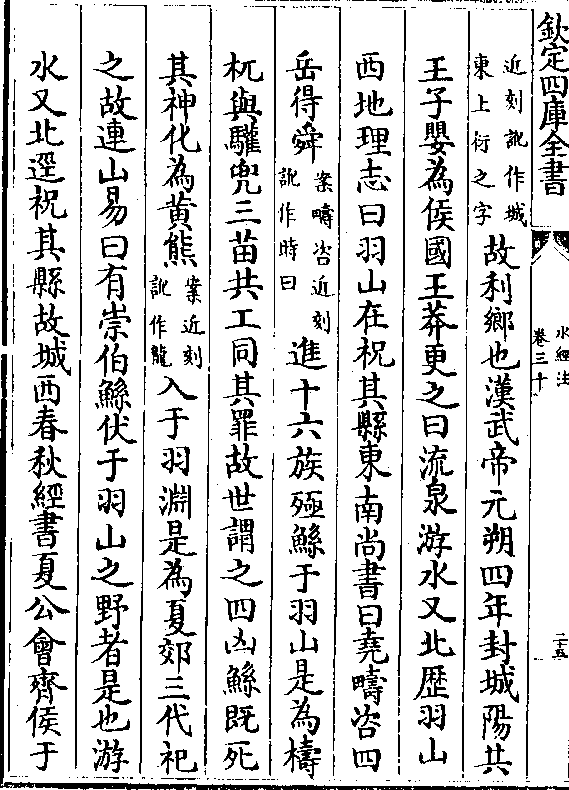 欽定四庫全書
水經注
卷三十
二十五
近刻訛作城
東上衍之字
故利鄉也漢武帝元朔四年封城陽共
王子嬰為侯國王莽更之曰流泉游水又北歴羽山
西地理志曰羽山在祝其縣東南尚書曰堯疇咨四
岳得舜
案疇咨近刻
訛作時曰
進十六族殛鯀于羽山是為檮
杌與驩兜三苗共工同其罪故世謂之四凶鯀既死
其神化為黄熊
案近刻
訛作龍
入于羽淵是為夏郊三代祀
之故連山易曰有崇伯鯀伏于羽山之野者是也游
水又北逕祝其縣故城西春秋經書夏公會齊侯于